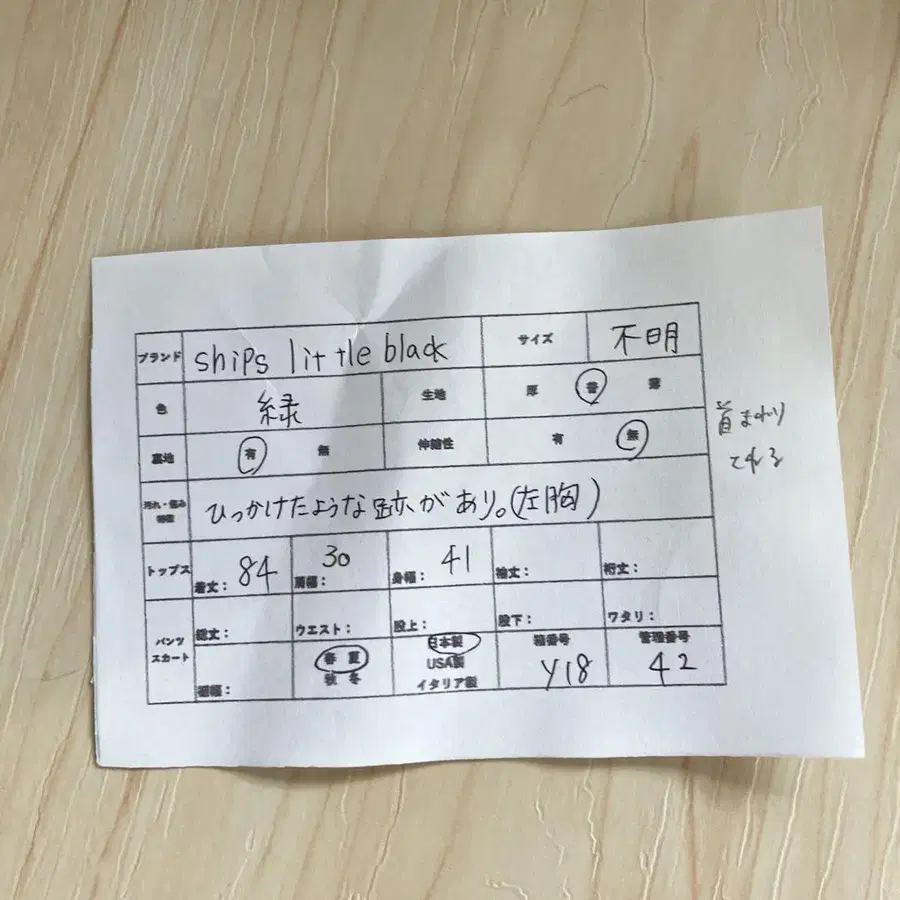 ブランド ships little black サイズ 不明
色 緑 生地 厚 普 薄
裏地 有 無 伸縮性 有 無
汚れ・傷み ひっかけたような跡があり。(左胸)
トップス 着丈: 84 肩幅: 30 身幅: 41 袖丈: 裄丈:
パンツ スカート 総丈: ウエスト: 股上: 股下: ワタリ:
裾幅: 春 夏 秋 冬 日本製 USA製 イタリア製 箱番号 Y18 管理番号 42
首まわり